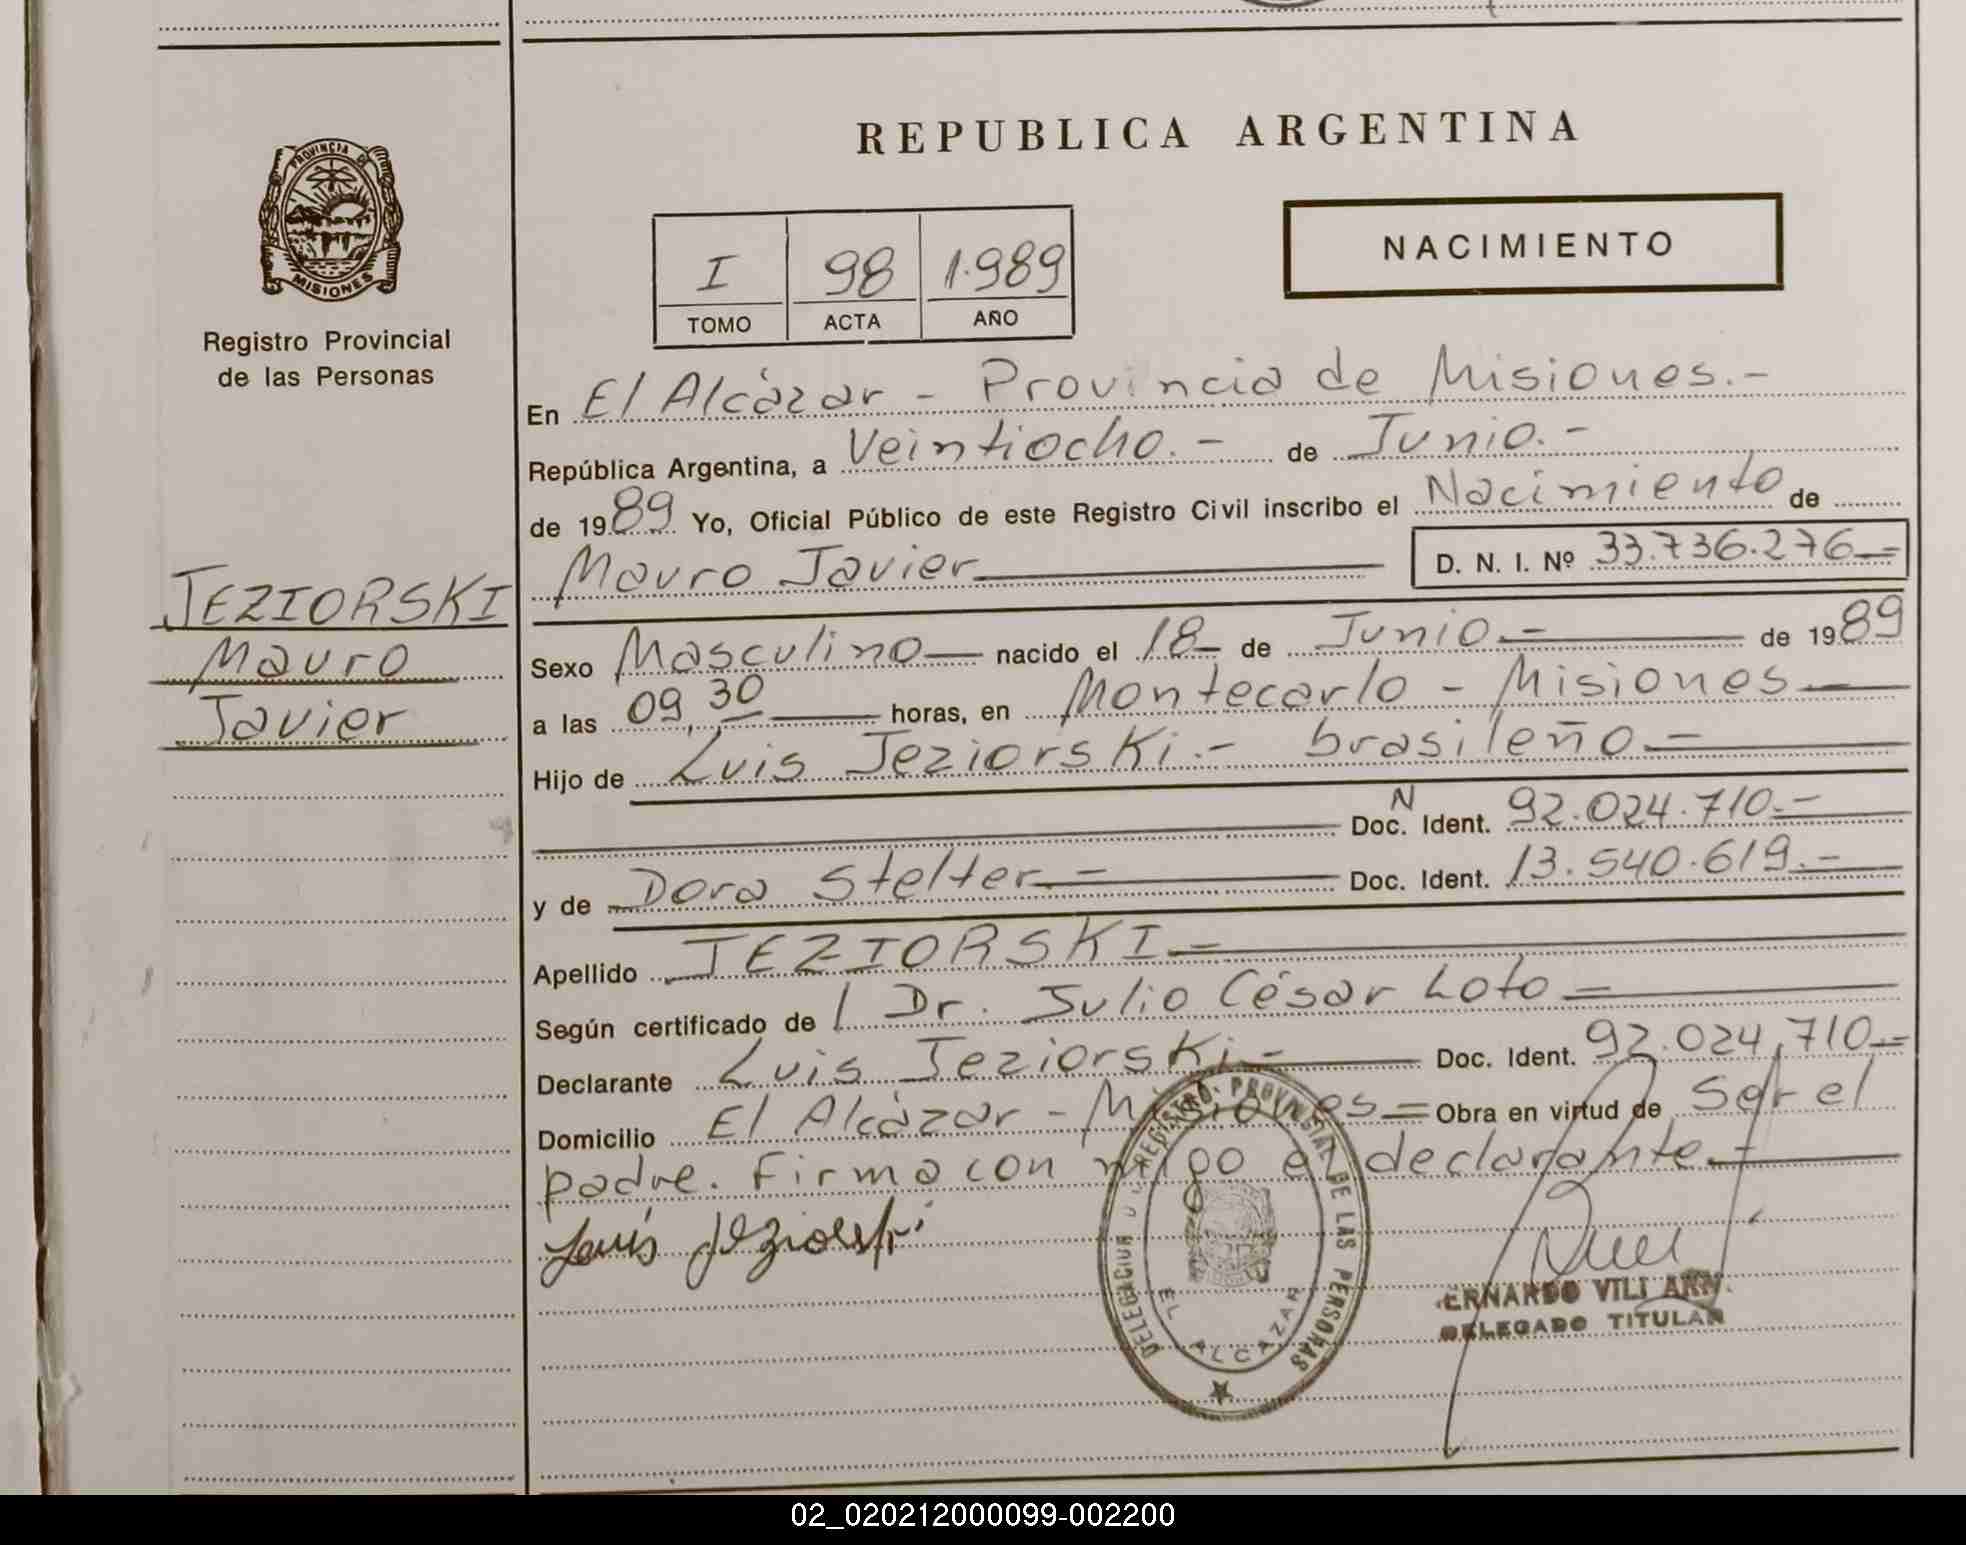 REPUBLICA ARGENTINA
PROVINCIA DE
MISIONES
Registro Provincial
de las Personas
NACIMIENTO
I 98 1.989
TOMO ACTA AÑO
En El Alcázar - Provincia de Misiones.-
República Argentina, a Veintiocho.- de Junio.-
de 1989 Yo, Oficial Público de este Registro Civil inscribo el Nacimiento de
Mauro Javier D. N. I. Nº 33.736.276
JEZIORSKI
Mauro
Javier
Sexo Masculino nacido el 18 de Junio.- de 1989
a las 09,30 horas, en Montecarlo - Misiones
Hijo de Luis Jeziorski.- brasileño.-
Doc. N Ident. 92.024.710.-
y de Dora Stelter.- Doc. Ident. 13.540.619.-
Apellido JEZIORSKI
Según certificado de / Dr. Julio César Loto
Declarante Luis Jeziorski.- Doc. Ident. 92.024.710.-
Domicilio El Alcázar - Misiones= Obra en virtud de Ser el
padre. Firma con migo el declarante.-
Luis Jeziorski
DELEGACION REGISTRO PROVINCIAL DE LAS PERSONAS
EL ALCAZAR
DELEGADO TITULAR
02_020212000099-002200